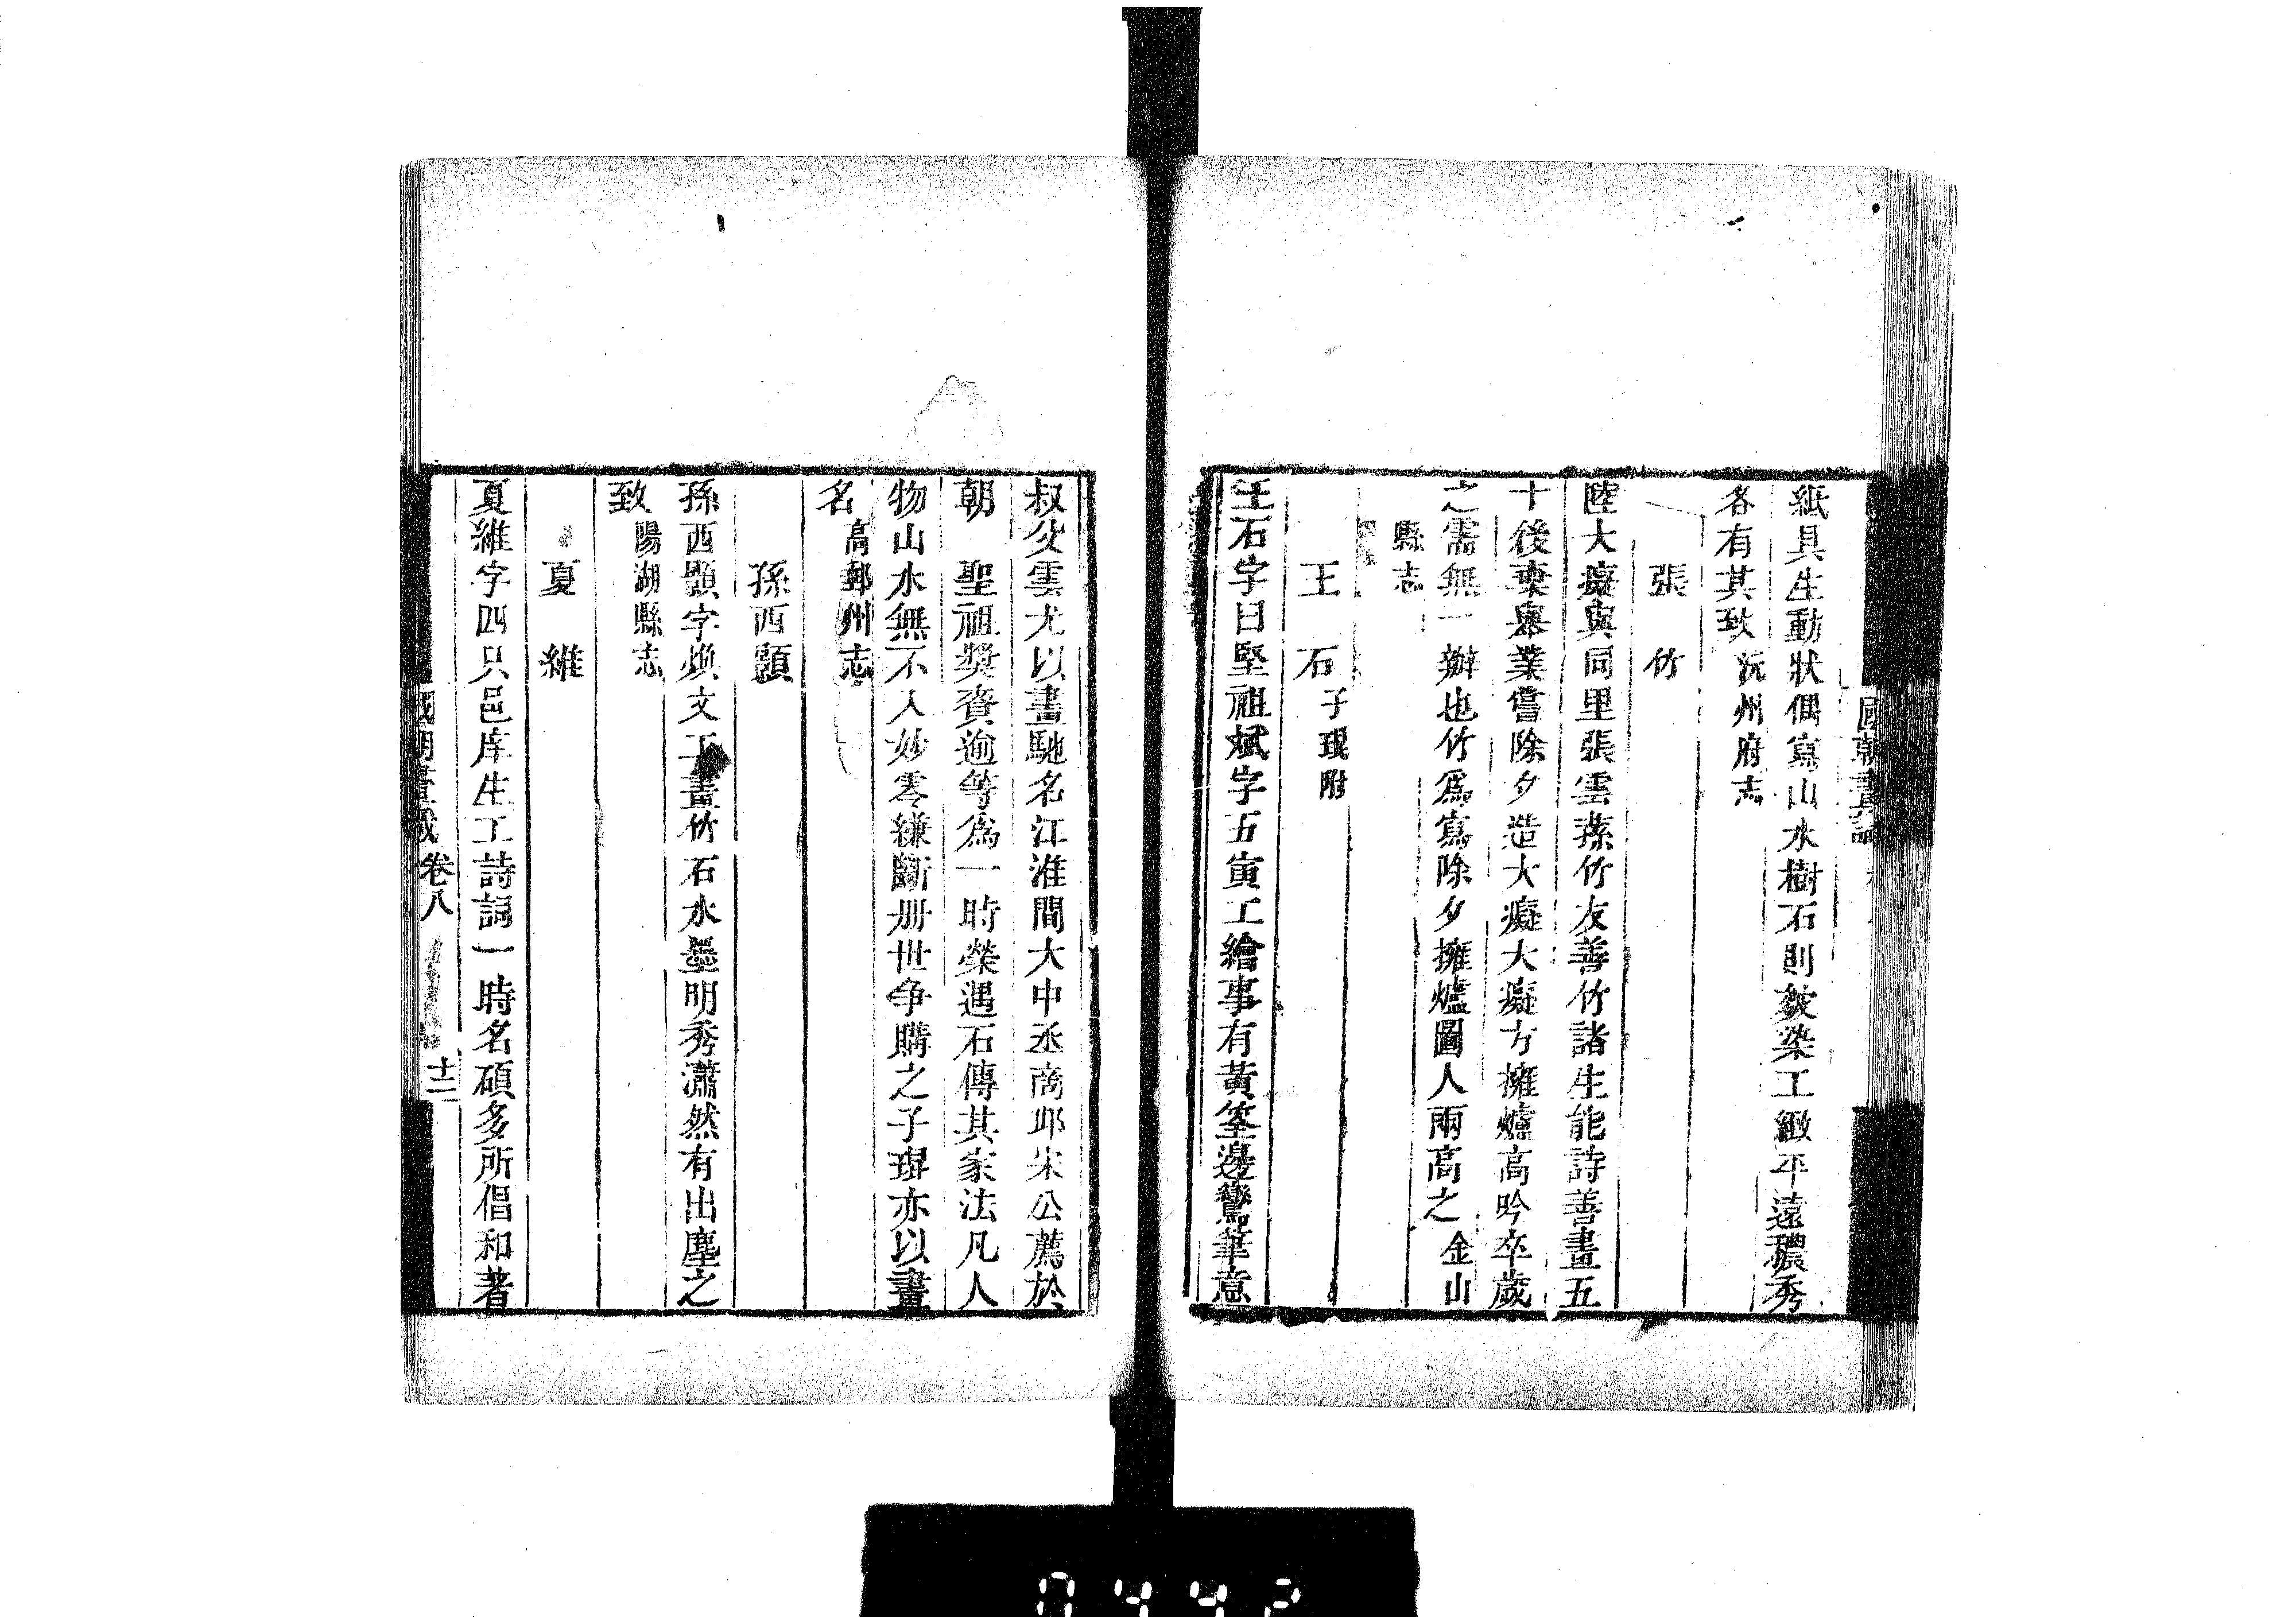 紙具生動狀偶寫山水樹石則皴染工緻平遠穠秀
各有其致 沅州府志
張 竹
陸大癡與同里張雲蓀竹友善竹諸生能詩善畫五
十後棄舉業嘗除夕造大癡大癡方擁爐高吟卒歲
之需無一辦也竹爲寫除夕擁爐圖人兩高之 金山
縣志
王 石 子琨附
王石字日堅祖斌字五寅工繪事有黃筌邊鸞筆意
叔父雲尤以畫馳名江淮間大中丞商邱宋公薦於
朝 聖祖獎賚逾等爲一時榮遇石傳其家法凡人
物山水無不入妙零縑斷册世争購之子琨亦以畫
名 高郵州志
孫西顥
孫西顥字煥文工畫竹石水墨明秀瀟然有出塵之
致 陽湖縣志
夏 維
夏維字四只邑庠生工詩詞一時名碩多所倡和著
卷八
十二